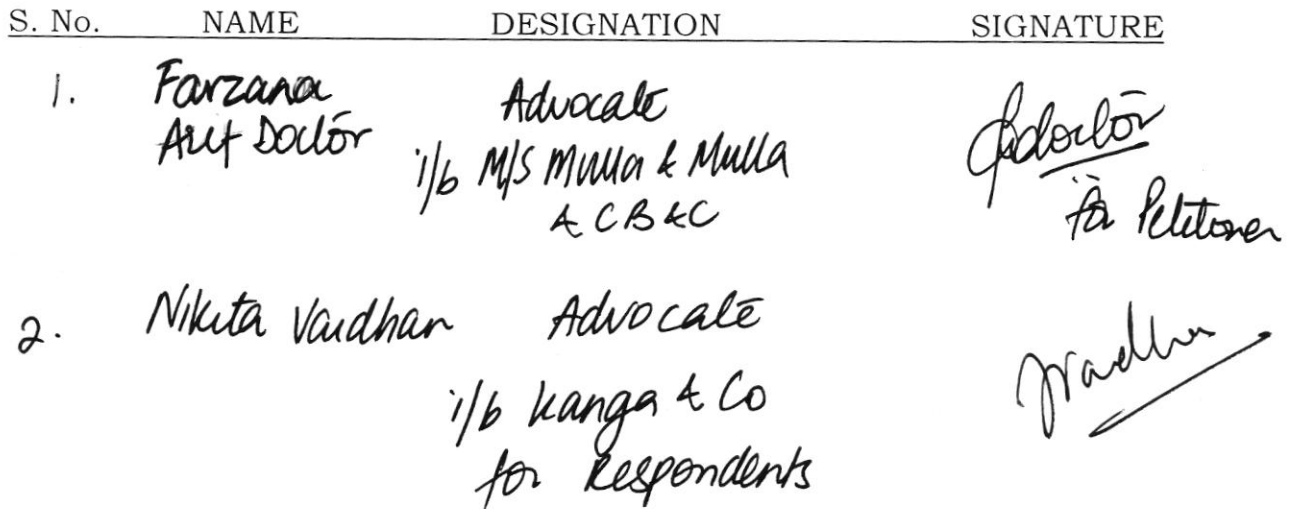 S. No. NAME DESIGNATION SIGNATURE
1. Farzana Advocate
Arif Doctor i/b M/S Mulla & Mulla
& CB&C
for Petitioner
2. Nikita Vardhan Advocate
i/b Kanga & Co
for Respondents